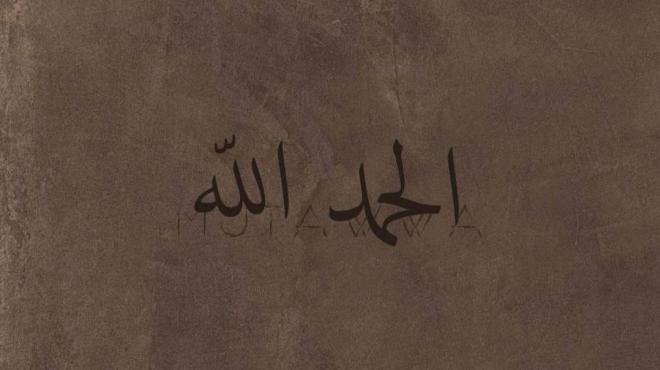 الحمد الله
MUTAWWA